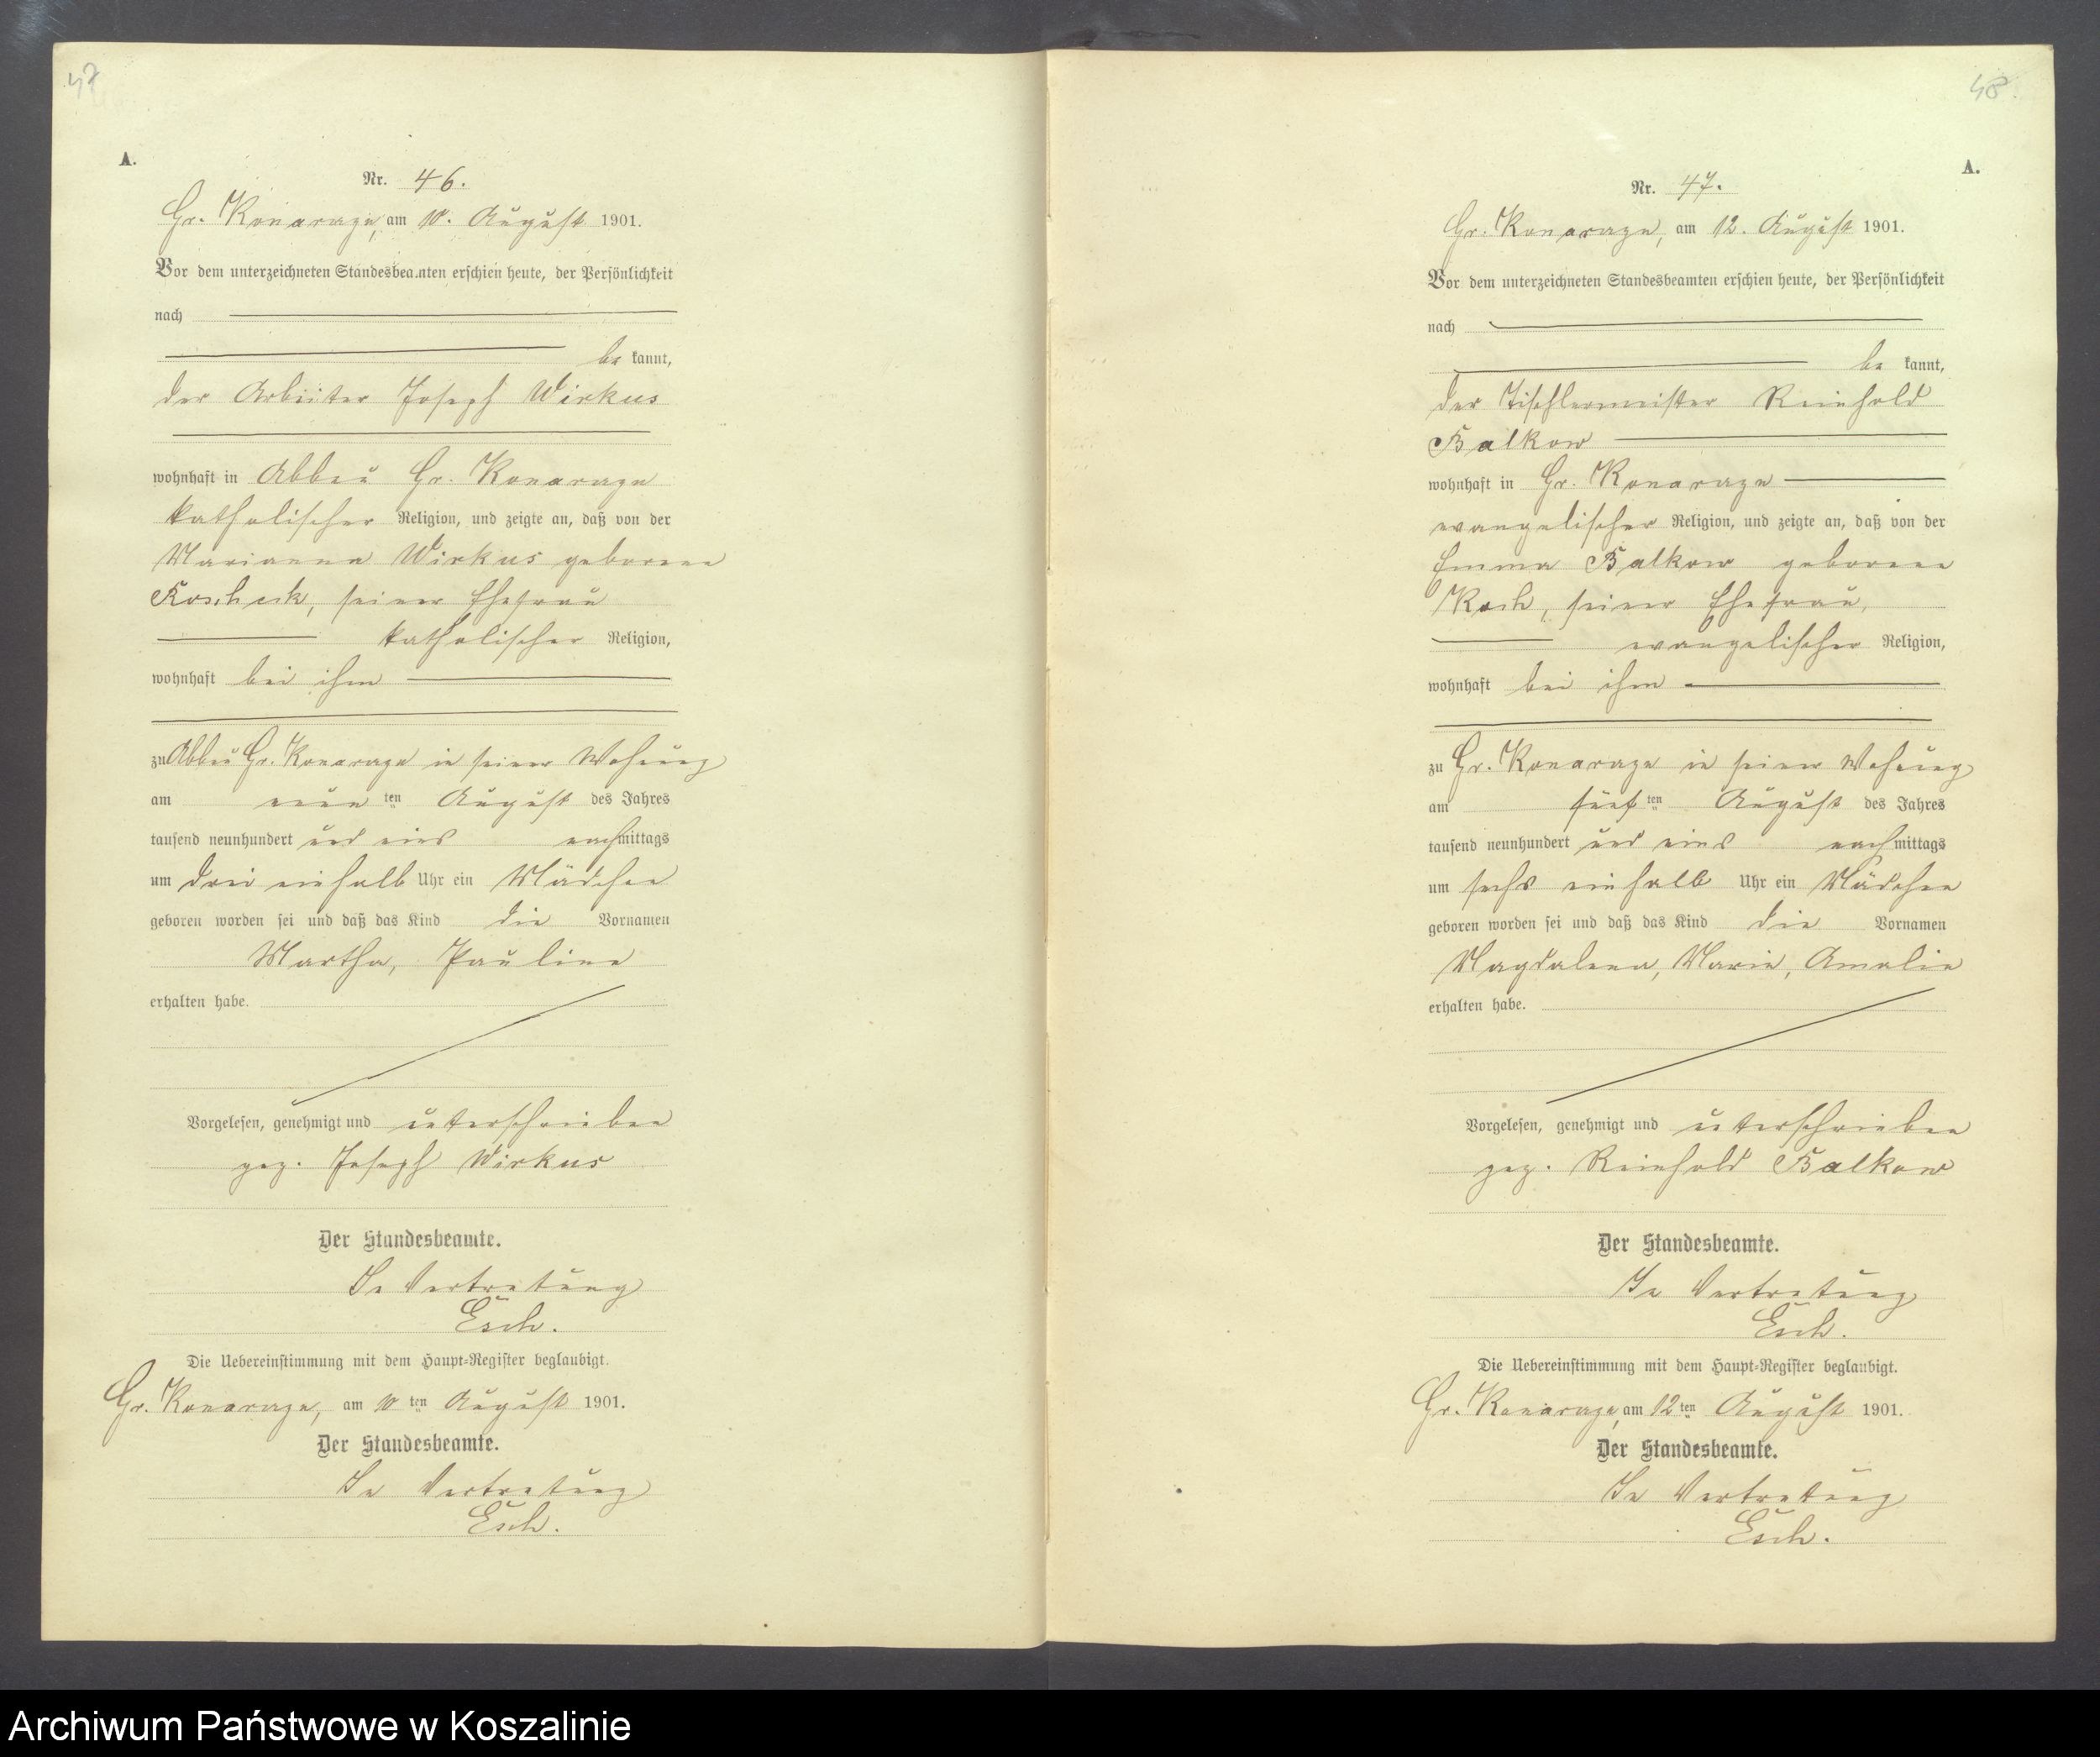 47
A.
Nr. 46.
Gr. Konarzyn, am 10. August 1901.
Vor dem unterzeichneten Standesbeamten erschien heute, der Persönlichkeit
nach
be kannt,
der Arbeiter Joseph Wirkus
wohnhaft in Abbau Gr. Konarzyn
katholischer Religion, und zeigte an, daß von der
Marianna Wirkus geborene
Koscheck, seiner Ehefrau
katholischer Religion,
wohnhaft bei ihm
zu Abbau Gr. Konarzyn in seiner Wohnung
am neun ten August des Jahres
tausend neunhundert und eins nachmittags
um drei einhalb Uhr ein Mädchen
geboren worden sei und daß das Kind die Vornamen
Martha, Pauline
erhalten habe.
Vorgelesen, genehmigt und unterschrieben
gez. Joseph Wirkus
Der Standesbeamte.
In Vertretung
Esch.
Die Uebereinstimmung mit dem Haupt-Register beglaubigt.
Gr. Konarzyn, am 10 ten August 1901.
Der Standesbeamte.
In Vertretung
Esch.
48
A.
Nr. 47.
Gr. Konarzyn, am 12. August 1901.
Vor dem unterzeichneten Standesbeamten erschien heute, der Persönlichkeit
nach
be kannt,
der Tischlermeister Reinhold
Balkow
wohnhaft in Gr. Konarzyn
evangelischer Religion, und zeigte an, daß von der
Emma Balkow geborene
Koch, seiner Ehefrau,
evangelischer Religion,
wohnhaft bei ihm
zu Gr. Konarzyn in seiner Wohnung
am fünf ten August des Jahres
tausend neunhundert und eins nachmittags
um sechs einhalb Uhr ein Mädchen
geboren worden sei und daß das Kind die Vornamen
Magdalena, Marie, Amalie
erhalten habe.
Vorgelesen, genehmigt und unterschrieben
gez. Reinhold Balkow
Der Standesbeamte.
In Vertretung
Esch.
Die Uebereinstimmung mit dem Haupt-Register beglaubigt.
Gr. Konarzyn, am 12 ten August 1901.
Der Standesbeamte.
In Vertretung
Esch.
Archiwum Państwowe w Koszalinie